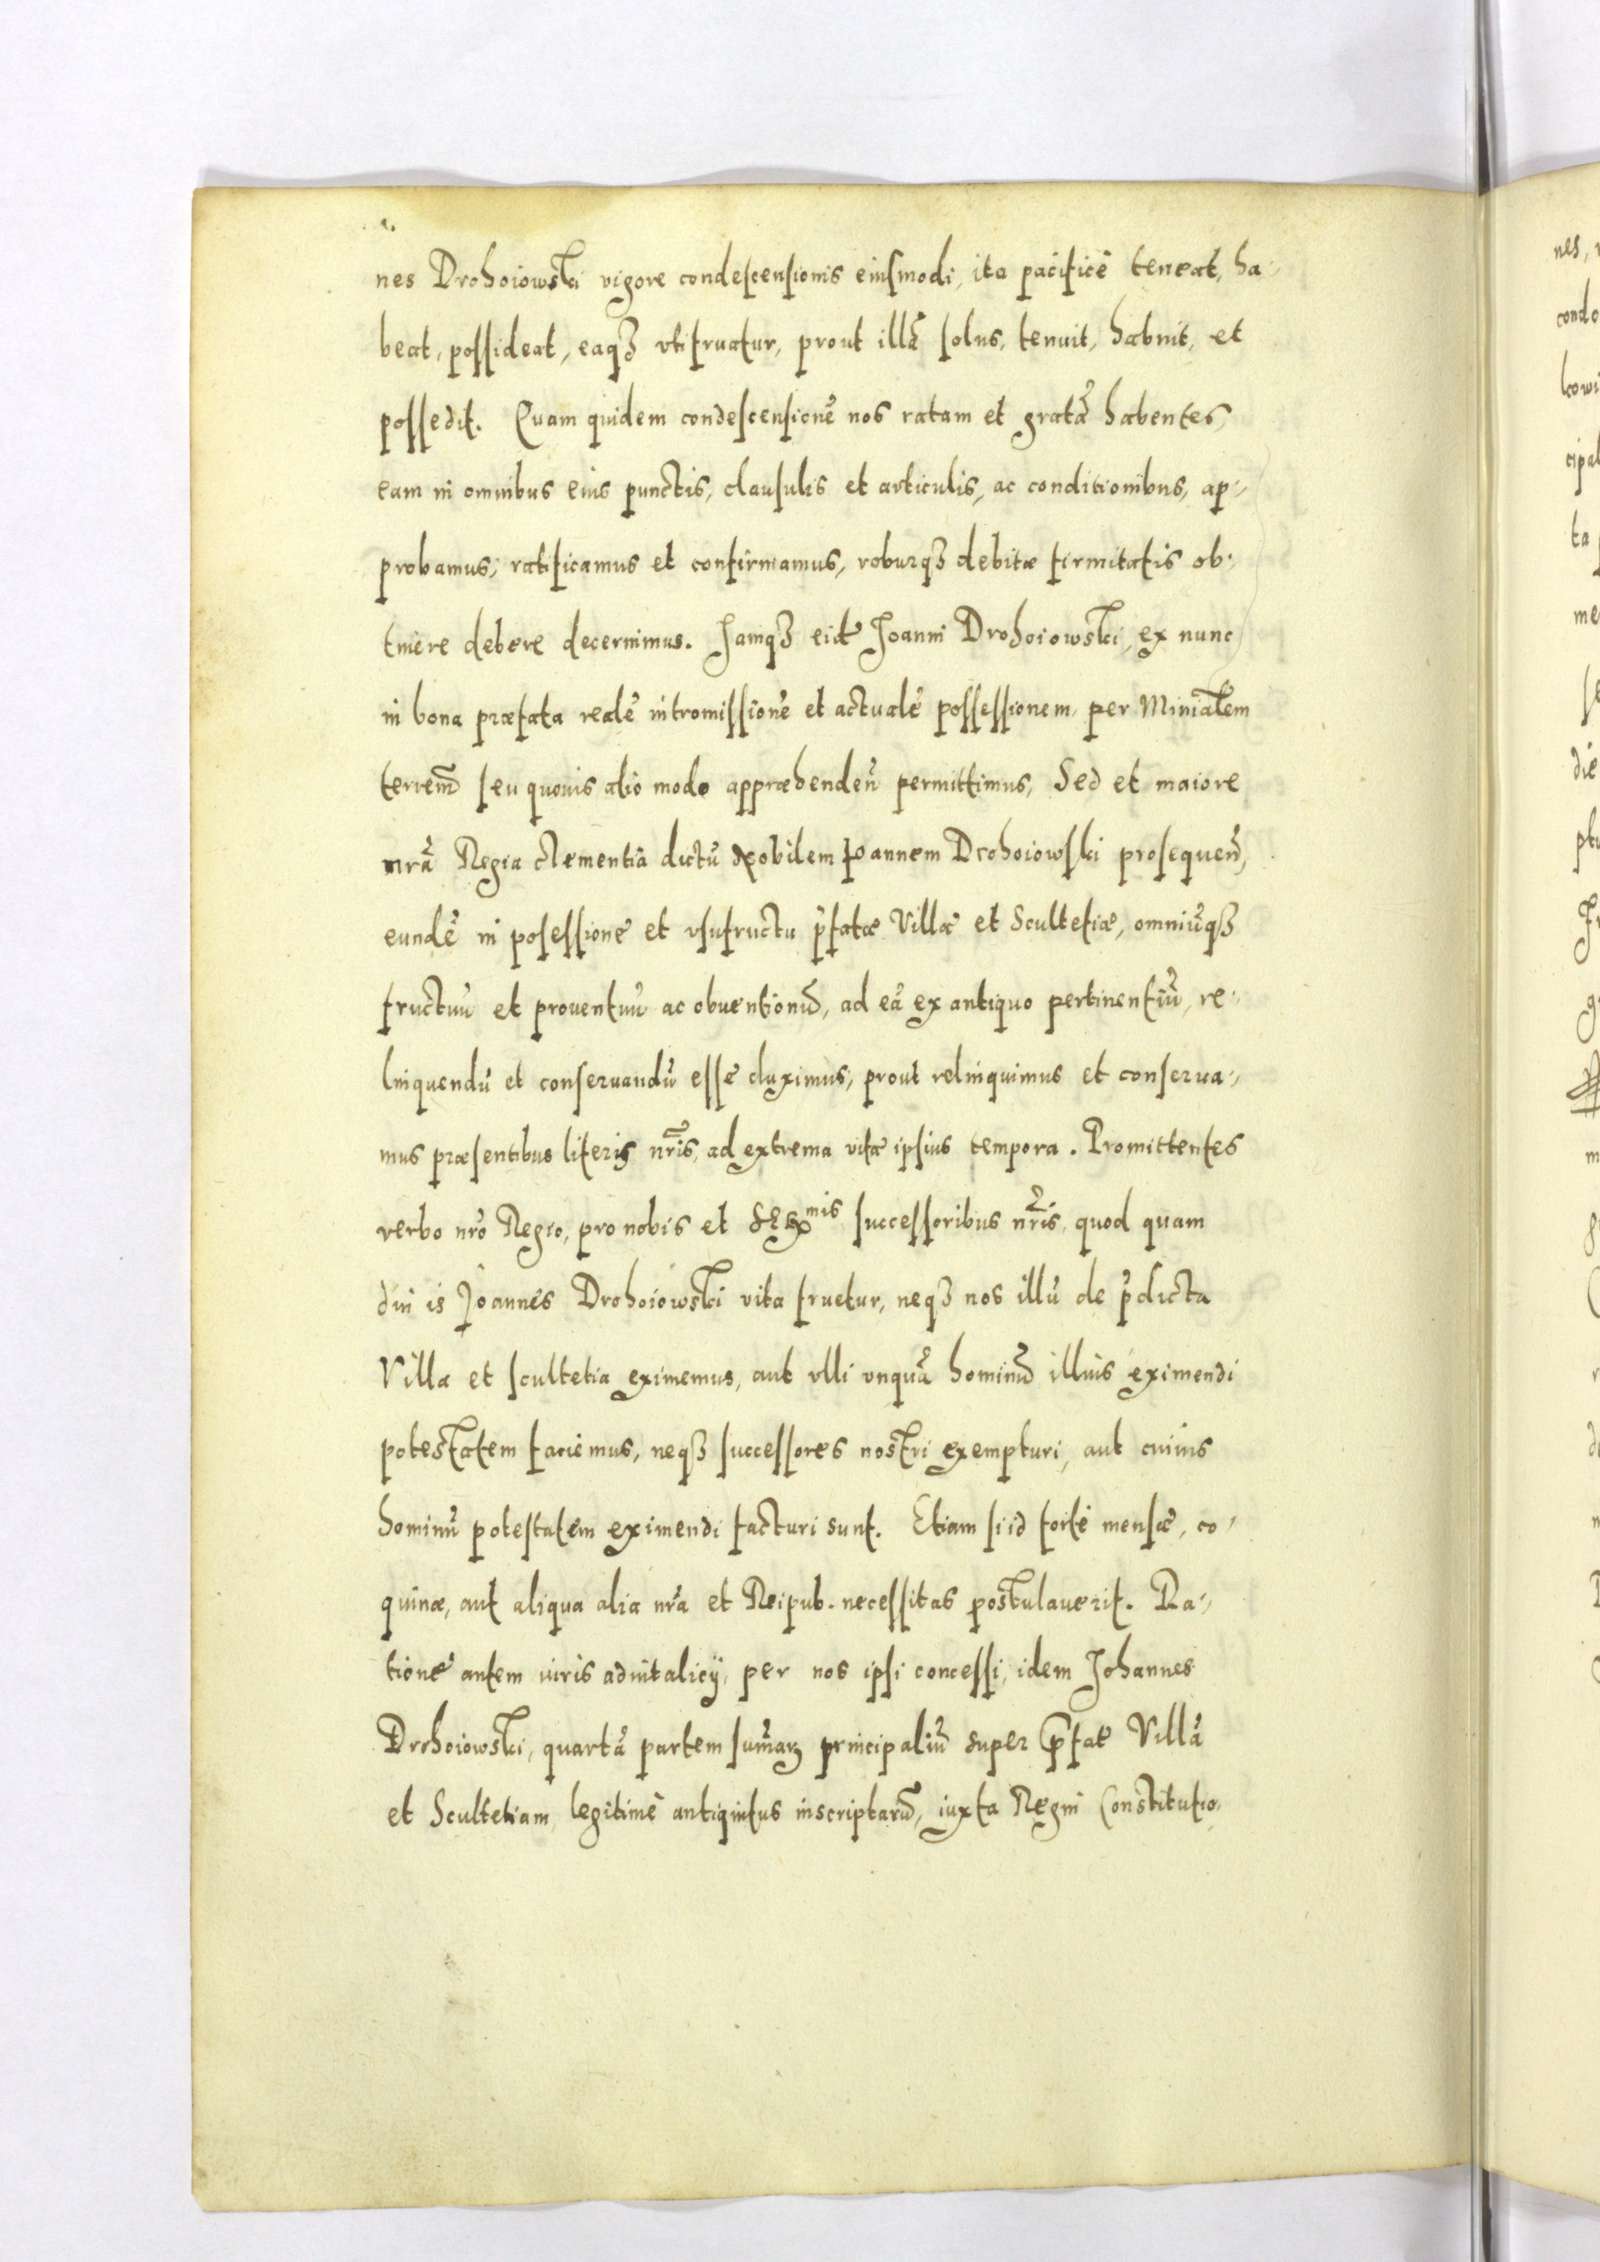 nes Drohoiowski vigore condescensionis eiusmodi, ita pacificè teneat, ha-
beat, possideat, eaqȝ vtifruatur, prout illã solus, tenuit, habuit, et
possedit. Quam quidem condescensionẽ nos ratam et gratã habentes,
eam in omnibus eius punctis, clausulis et articulis, ac conditionibus, ap-
probamus, ratificamus et confirmamus, roburqȝ debitæ firmitatis ob-
tinere debere decernimus. Iamqȝ eidẽ Joanni Drohoiowski, ex nunc
in bona præfata realẽ intromissionẽ et actualẽ possessionem, per Minialem
terrem̃ seu quouis alio modo appræhendeñ permittimus, Sed et maiore
nrã Regia clementia dictũ Nobilem Joannem Drohoiowski prosequeñ,
eundẽ in posessionẽ et vsufructu p̃fatæ Villæ et Scultetiæ, omniũqȝ
fructuũ et prouentuũ ac obuentionũ, ad eã ex antiquo pertinentiũ, re-
linquendũ et conseruandũ esse duximus, prout relinquimus et conserua-
mus præsentibus literis nr̃is, ad extrema vitæ ipsius tempora. Promittentes
verbo nr̃o Regio, pro nobis et Seren͏ᵐⁱˢ successoribus nr̃is, quod quam
diu is Joannes Drohoiowski vita fruetur, neqȝ nos illũ de p̃dicta
Villa et scultetia eximemus, aut vlli vnquã hominũ illius eximendi
potestatem faciemus, neqȝ successores nostri exempturi, aut cuiuis
hominũ potestatem eximendi facturi sunt. Etiam si id forte mensæ, co-
quinæ, aut aliqua alia nr̃a et Reipub. necessitas postulauerit. Ra-
tionẽ autem iuris aduitalicij, per nos ipsi concessi, idem Johannes
Drohoiowski, quartã partem sum̃arȝ principaliũ super p̃fatẽ Villã
et Scultetiam legitimè antiquitus inscriptarũ, iuxta Regni Constitutio-
nes,